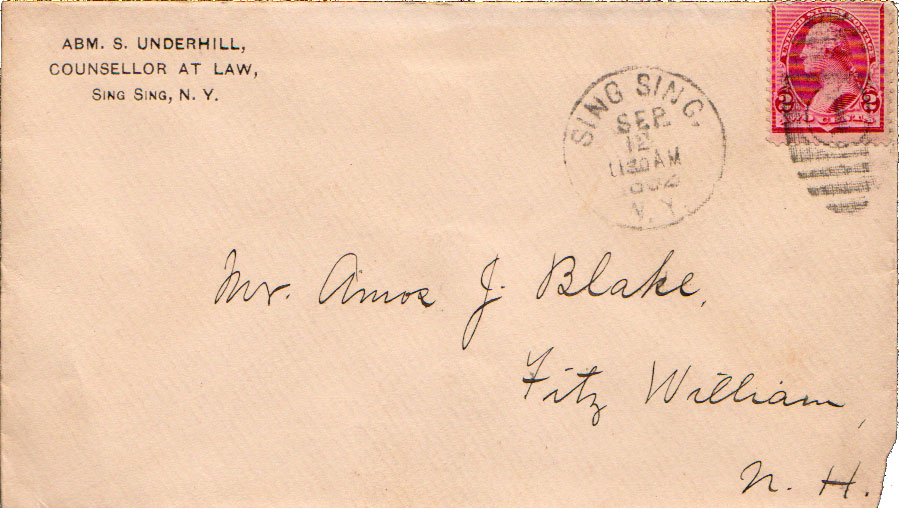 ABM. S. UNDERHILL,
COUNSELLOR AT LAW,
SING SING, N. Y.
SING SING,
SEP
12
1130AM
N. Y.
2 2
Mr. Amos J. Blake,
Fitz William,
N. H.